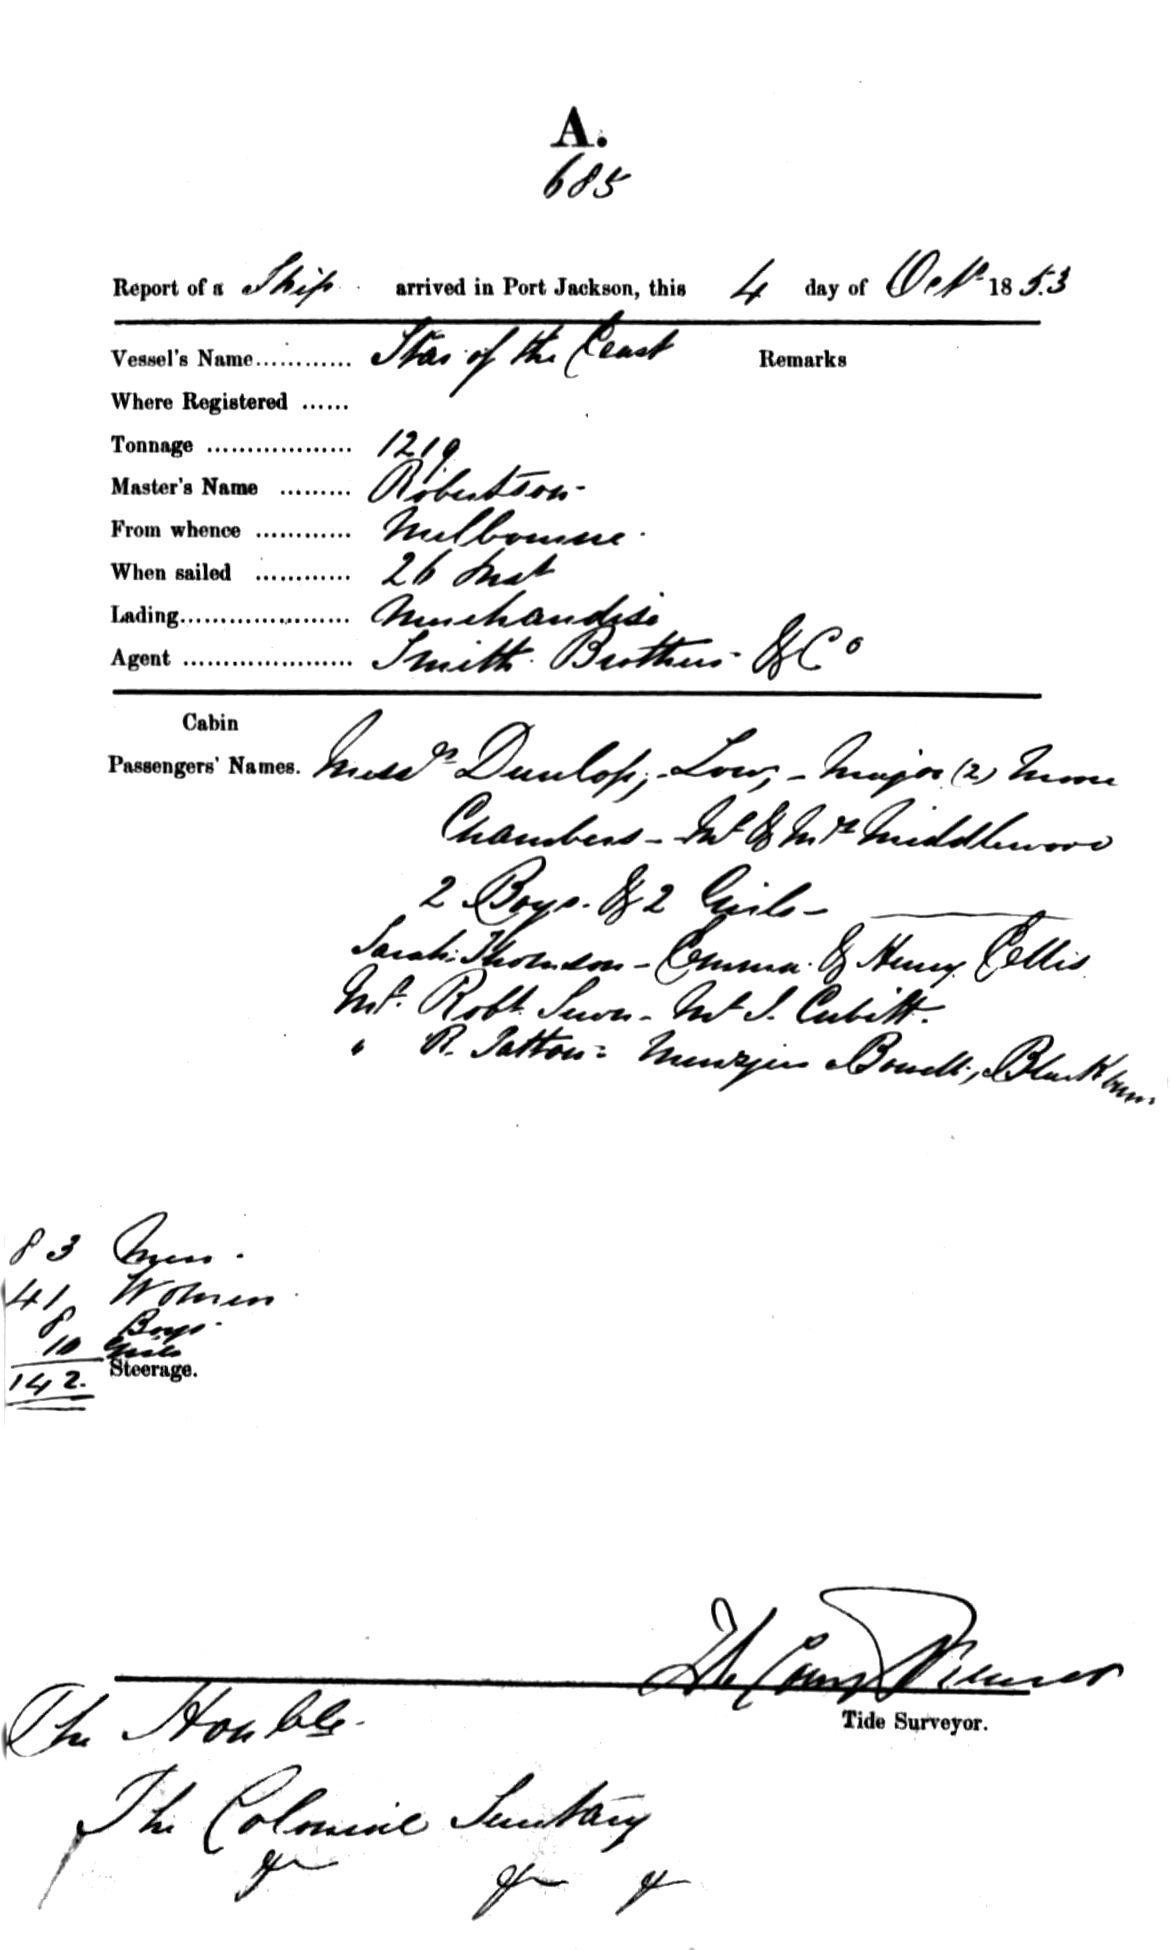 A.
685
Report of a Ship arrived in Port Jackson, this 4 day of Octr 1853
Vessel's Name............ Star of the East Remarks
Where Registered ......
Tonnage .................. 1219
Master's Name ......... Robertson
From whence ............ Melbourne
When sailed ............ 26 Inst
Lading..................... Merchandise
Agent ..................... Smith Brothers & Co
Cabin
Passengers' Names. Messrs Dunlop, Low, - Major (2)
Chambers - Mr & Mrs Middlewood
2 Boys. & 2 Girls -
Sarah Thomson - Emma & Henry Ellis
Mr. Robt - Mr J. Cubitt.
" R. Patton - Menzies Blackburn
83 Men
41 Women
8 Boys
10 Girls
Steerage.
142.
Tide Surveyor.
The Honble
The Colonial Secretary